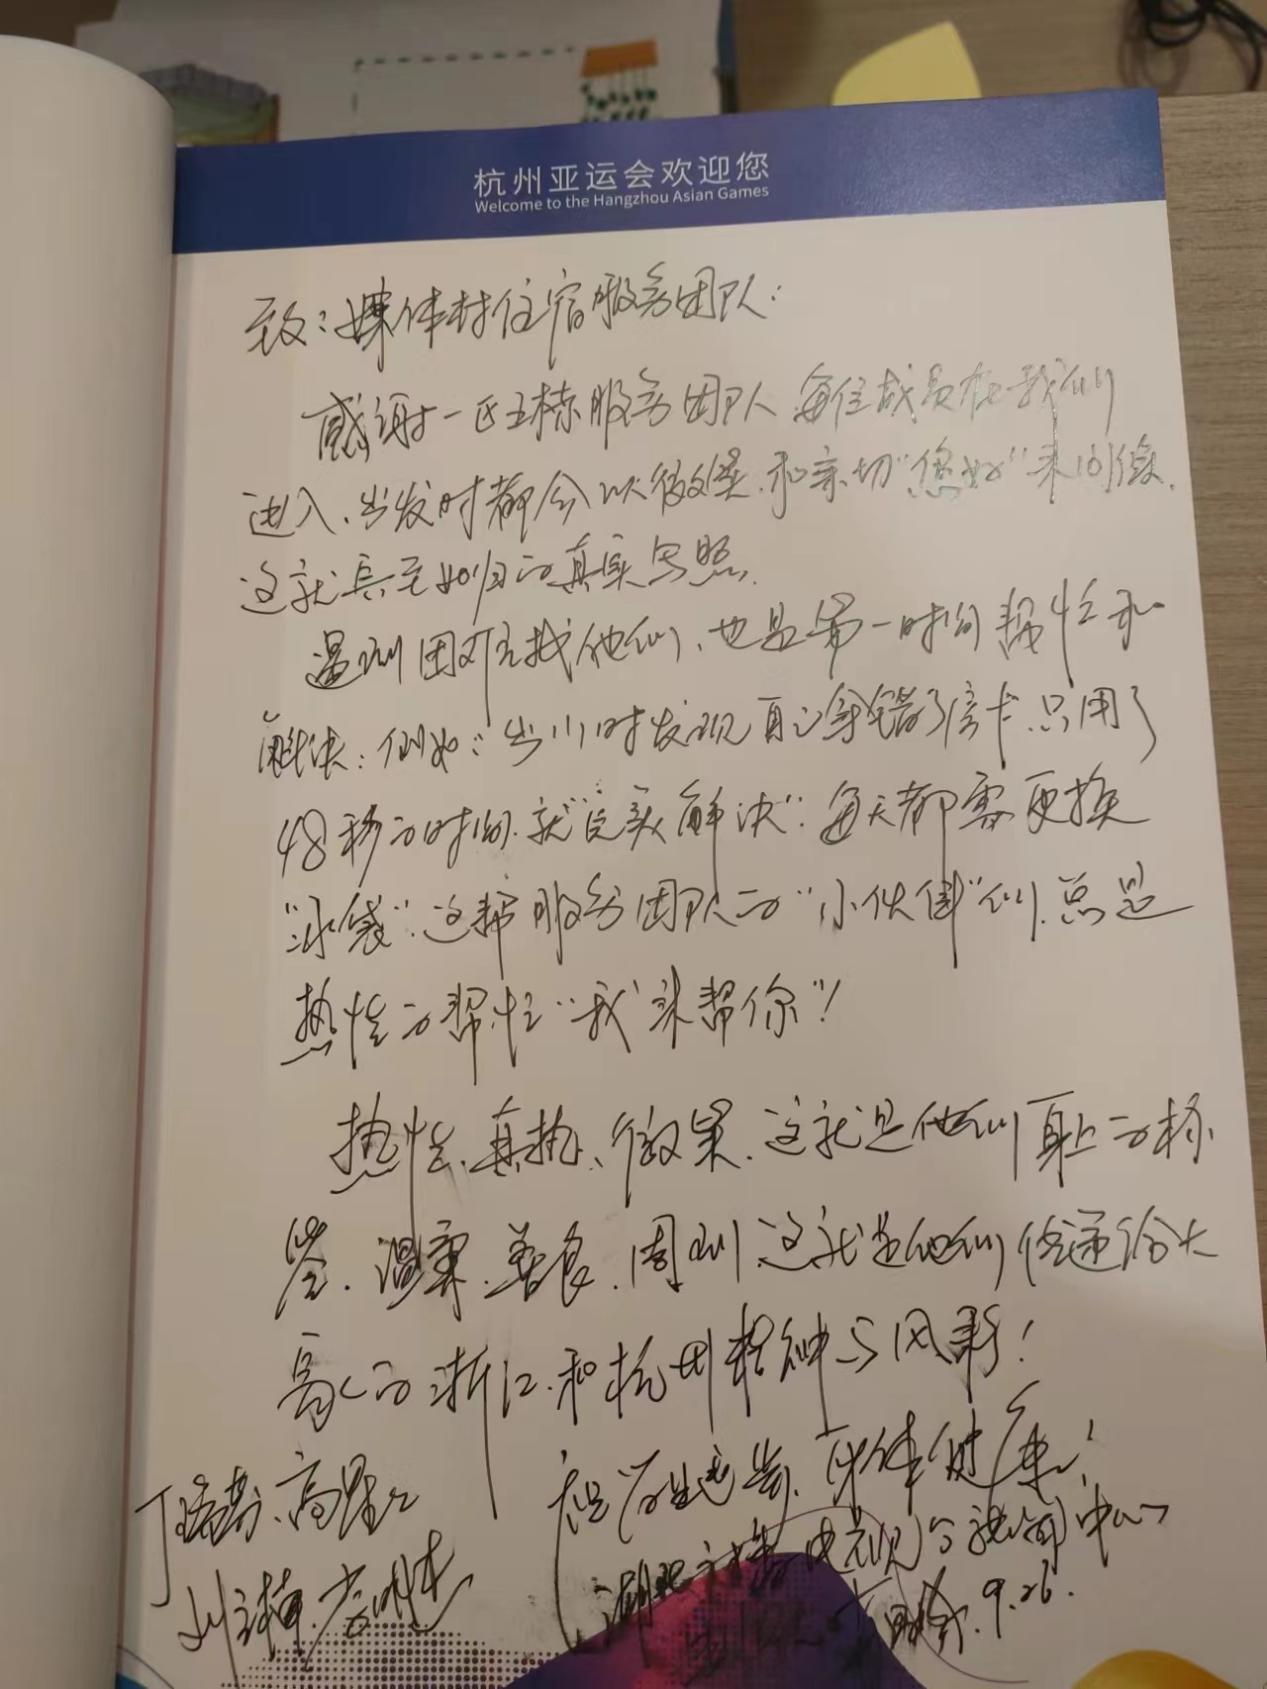 杭州亚运会欢迎您
Welcome to the Hangzhou Asian Games
致:媒体村住宿服务团队:
感谢一区五栋服务团队每位成员在我们
进入、出发时都会以微笑、和亲切“您好”来问候、
这就宾至如归的真实写照.
遇到困难找他们、也是第一时间帮忙和
解决:例如:出门时发现自己拿错了房卡.只用了
48秒的时间.就“完美解决”:每天都需更换
“冰袋”.这帮服务团队的“小伙伴”们.总是
热情的帮忙“我来帮你”!
热情、真挚、微笑.这就是他们身上的标
签.温柔.善良.周到.这就是他们传递给大
家的浙江.和杭州精神与风彩!
祝 身体健康!
湖北广播电视台新闻中心
9.26.